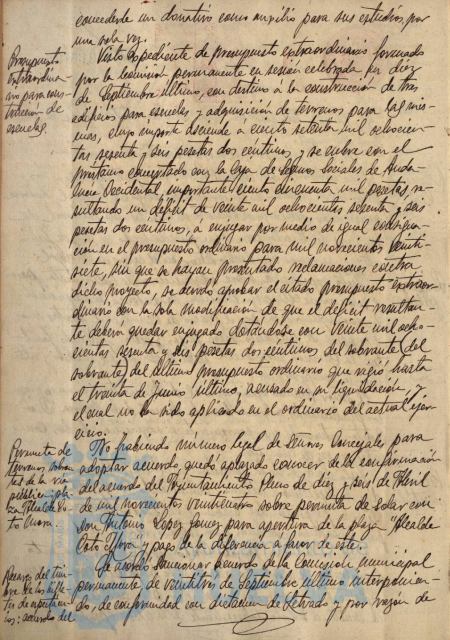 concederle un donativo como auxilio para sus estudios, por
una sola vez.
Presupuesto
extraordina-
rio para cons-
trucción de
escuelas
Visto expediente de presupuesto extraordinario formado
por la Comisión permanente en sesión celebrada en diez
de Septiembre último, con destino a la construcción de tres
edificios para escuelas y adquisición de terrenos para las mis-
mas, cuyo importe asciende a ciento setenta mil ochocien-
tas sesenta y seis pesetas dos centimos, y se cubre con el
prestamo concertado con la Caja de Seguros Sociales de Anda-
lucia Occidental, importante ciento cincuenta mil pesetas re-
sultando un déficit de veinte mil ochocientas sesenta y seis
pesetas dos centimos, a enjugar por medio de igual consigna-
ción en el presupuesto ordinario para mil novecientos veinti-
siete, sin que se hayan presentado reclamaciones contra
dicho proyecto, se acordó aprobar el citado presupuesto extraor-
dinario con la sola modificación de que el déficit resultan-
te deberá quedar enjugado dotandose con veinte mil ocho-
cientas sesenta y seis pesetas dos centimos del sobrante (del
sobrante) del último presupuesto ordinario que rigió hasta
el treinta de Junio último, acusado en su liquidación, y
el cual no ha sido aplicado en el ordinario del actual ejer-
cicio.
Permuta de
terrenos sobran-
tes de la via
pública: pla-
za Alcalde Co-
to Mora.
No habiendo número legal de Señores Concejales para
adoptar acuerdo, quedó aplazado conocer de la confirmación
del acuerdo del Ayuntamiento Pleno de diez y seis de Abril
de mil novecientos veinticuatro sobre permuta de solar con
Don Antonio Lopez Gomez para apertura de la plaza "Alcalde
Coto Mora" y pago de la diferencia a favor de este.
del tim-
acuerdo del
Se acordó sancionar acuerdo de la Comisión municipal
permanente, de veintitres de Septiembre último interponien-
do, de conformidad con dictamen de Letrado y por razón de